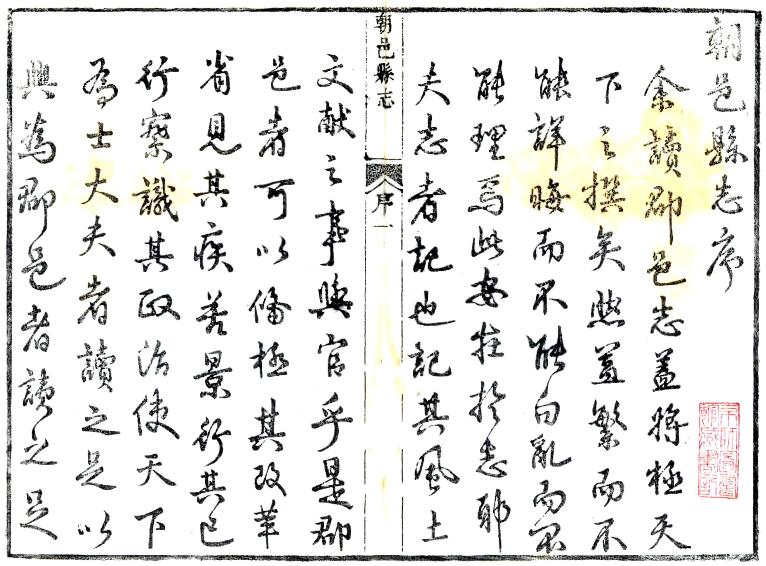 朝邑縣志序
余讀郡邑志蓋將極天
下之撰矣然蓋繁而不
能詳晦而不能白亂而不
能理焉此安在於志耶
夫志者記也記其風土
朝邑縣志
序一
文献之事與官乎是郡
邑者可以偹極其改革
省見其疾苦景行其已
行察識其政治使天下
為士大夫者讀之足以
興為郡邑者讀之足